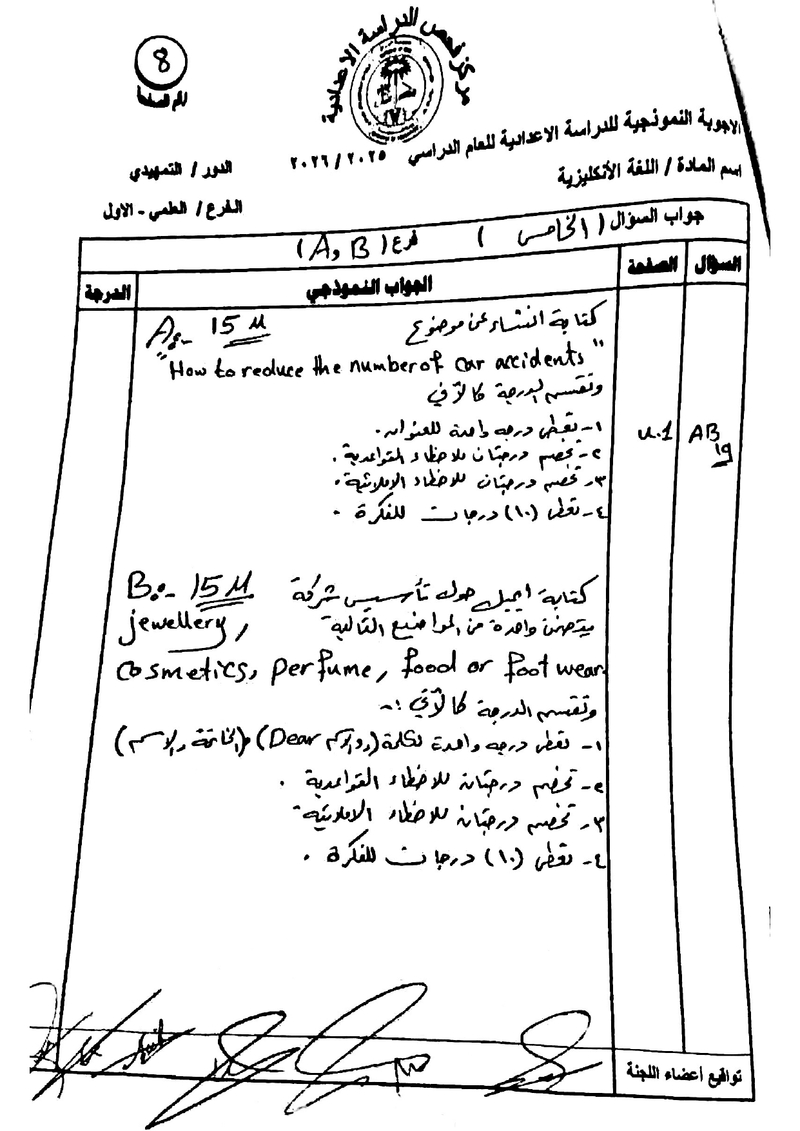 مركز فحص الدراسة الاعدادية
8
رقم الصفحة
الاجوبة النموذجية للدراسة الاعدادية للعام الدراسي ٢٠٢٥ / ٢٠٢٦
اسم المادة / اللغة الأنكليزية
الدور / التمهيدي
الفرع / العلمي - الاول
جواب السؤال (الخامس) فرع (A, B)
السؤال الصفحة الجواب النموذجي الدرجة
كتابة انشاء عن موضوع A:- 15 M
"How to reduce the number of car accidents"
وتقسم الدرجة كالآتي
١- تعطى درجة واحدة للعنوان.
٢- تخصم درجتان للاخطاء القواعدية.
AB
19
٣- تخصم درجتان للاخطاء الاملائية.
٤- تعطى (١٠) درجات للفكرة.
كتابة ايميل حول تأسيس شركة B:- 15 M
يتضمن واحدة من المواضيع التالية jewellery,
cosmetics, perfume, food or footwear
وتقسم الدرجة كالآتي :-
١- تعطى درجة واحدة لكلمة (Dear) و(الخاتمة والاسم)
٢- تخصم درجتان للاخطاء القواعدية.
٣- تخصم درجتان للاخطاء الاملائية
٤- تعطى (١٠) درجات للفكرة.
تواقيع أعضاء اللجنة